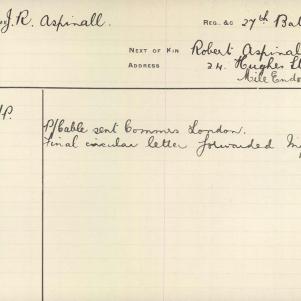 J. R. Aspinall. REG. &c 27th Bat
NEXT OF KIN Robert Aspinal
ADDRESS 24. Hughes St
Mile End
P.
P/Cable sent Commrs London.
Final circular letter forwarded